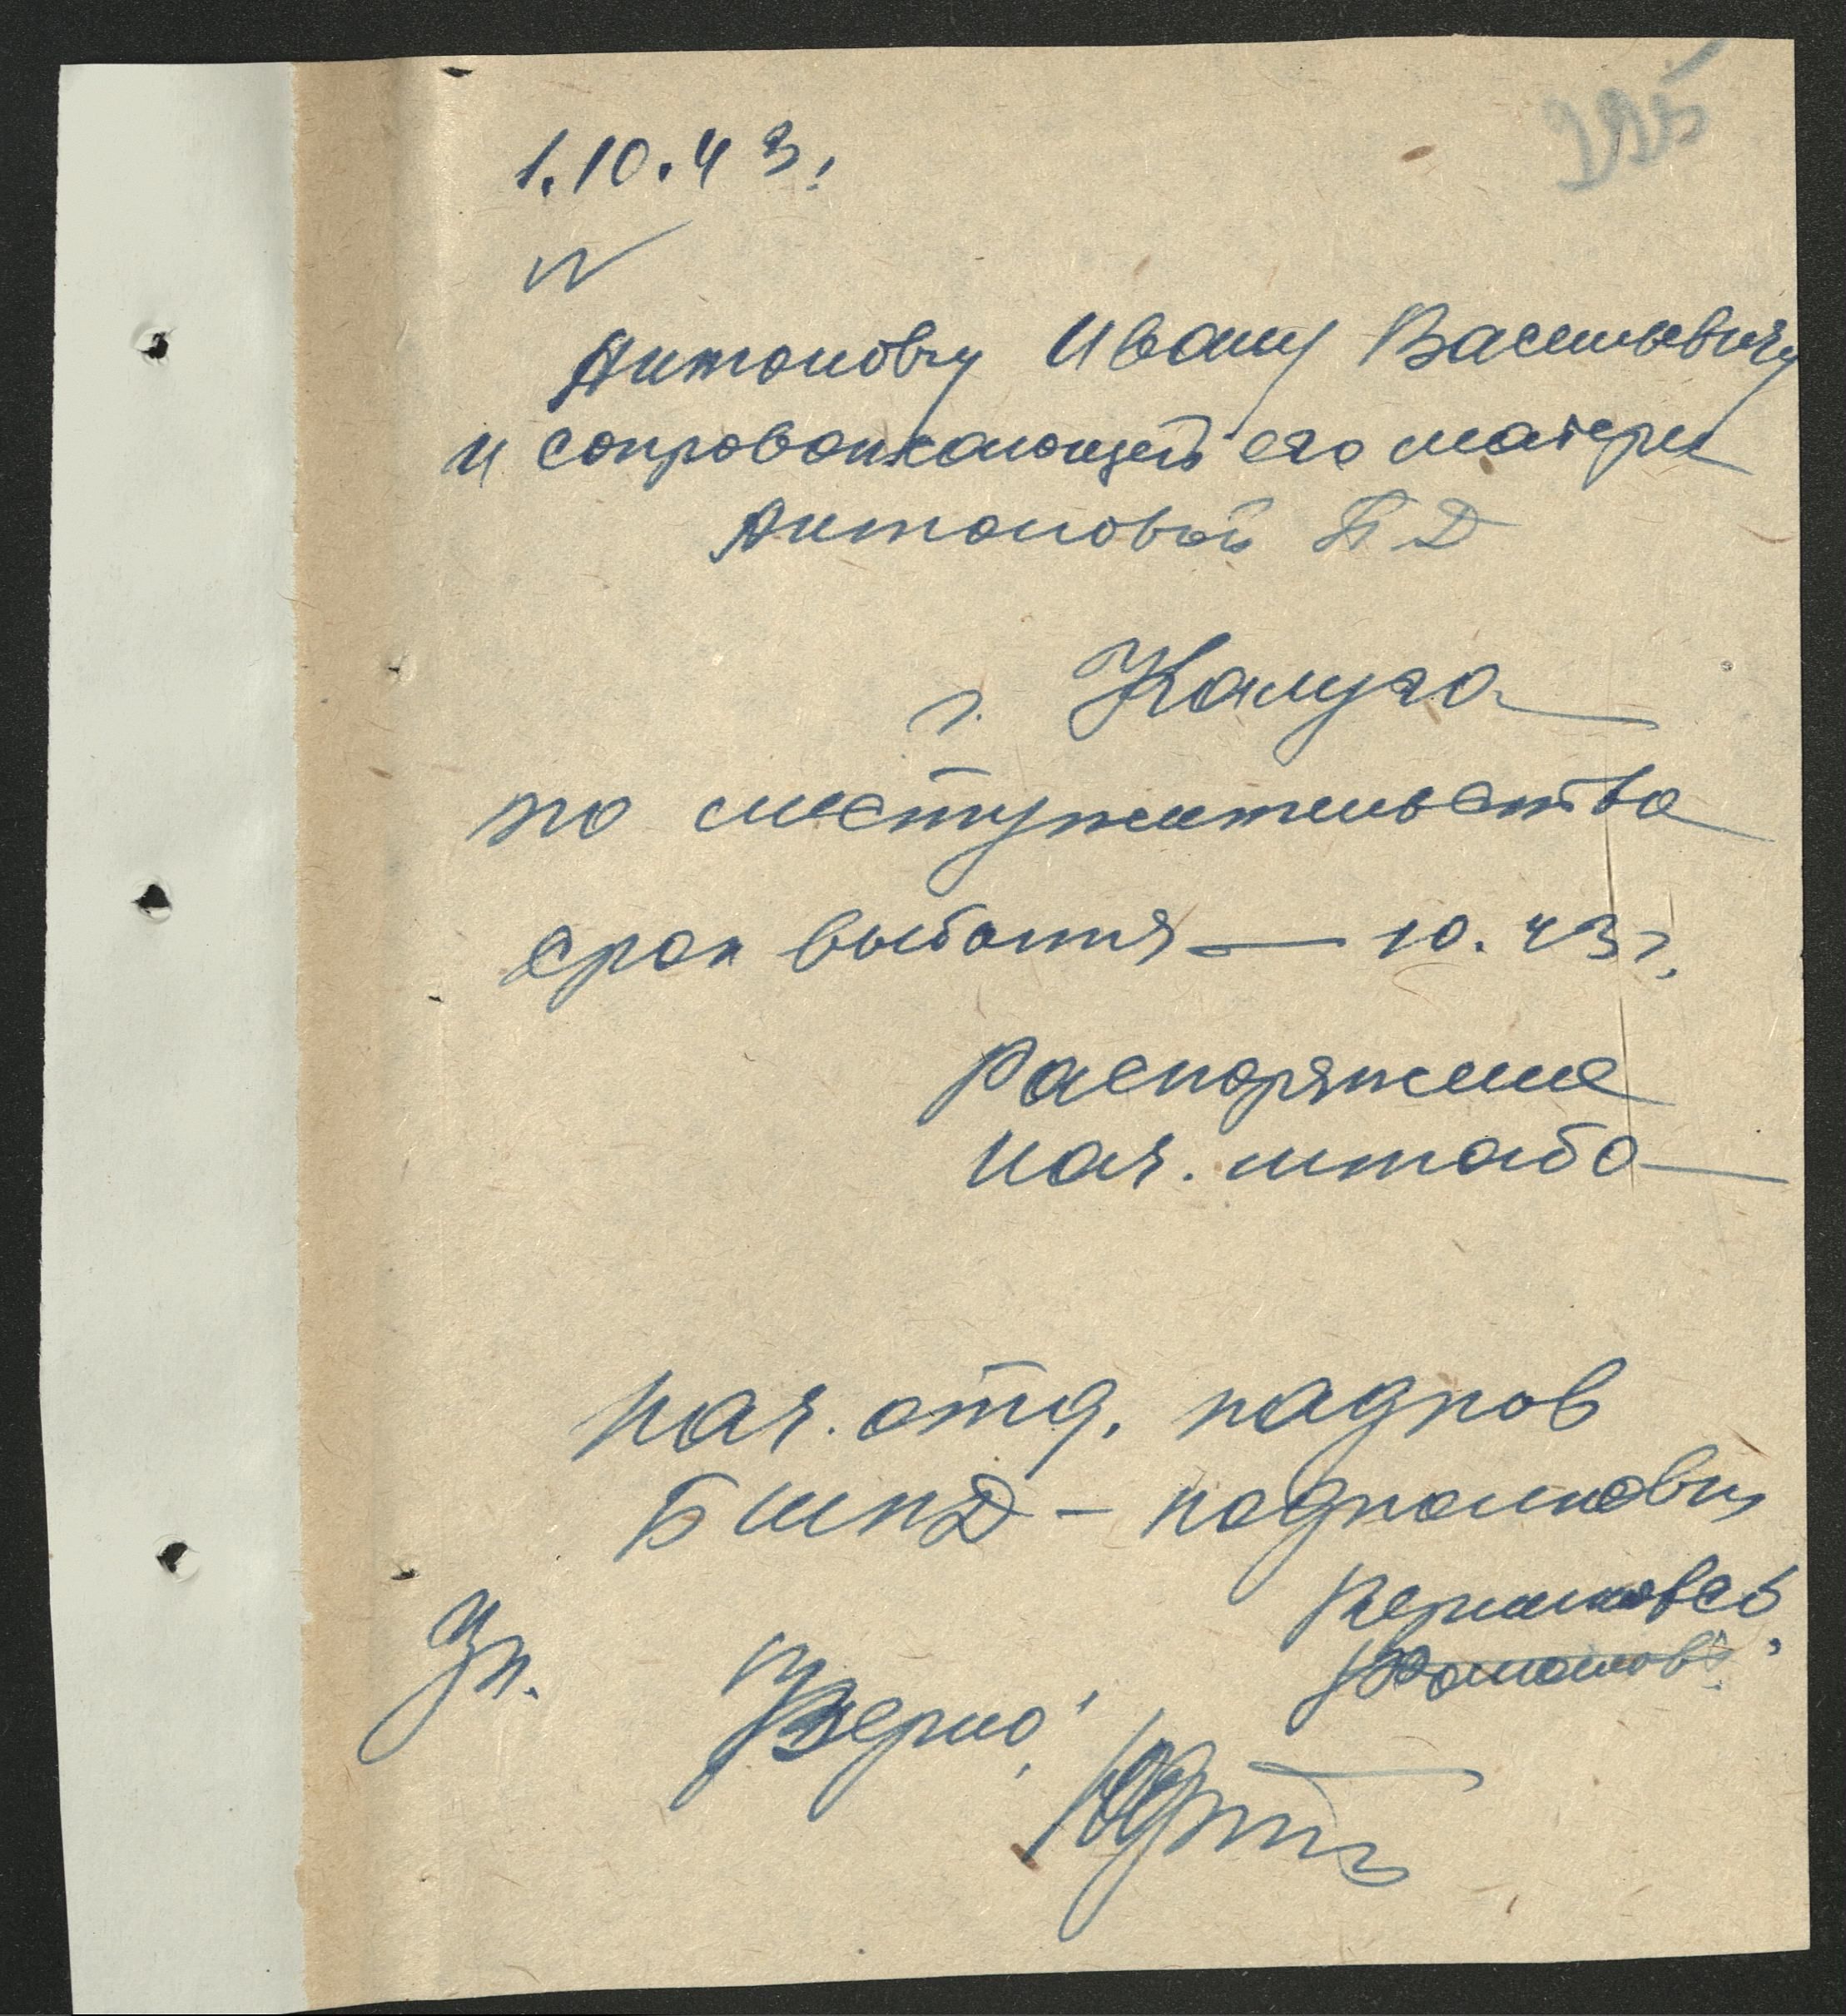 225
1.10.43г
Антонову Ивану Васильевичу
и сопровождающей его матери
Антоновой П Д
г. Калуга
по местужительства
срок выбытия — 10.43г.
Распоряжение
нач. штаба
Нач. отд. кадров
БШПД – подполковн
Зп. Верно: